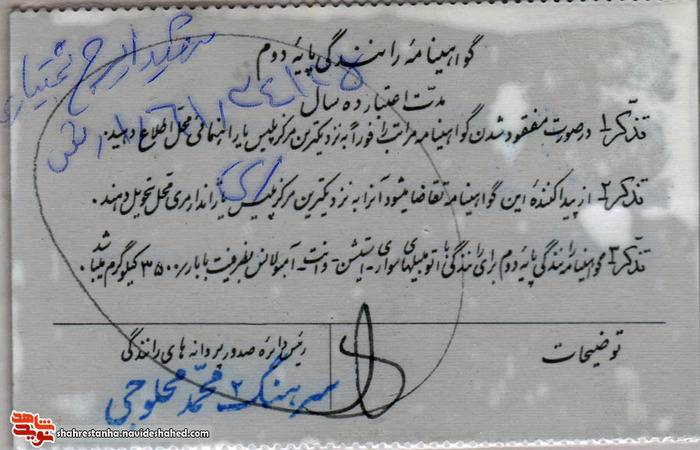 گواهینامه رانندگی پایه دوم
مدت اعتبار ده سال
تذکر۱- درصورت مفقود شدن گواهینامه مراتب را فوراً به نزدیکترین مرکز پلیس یا راهنمائی محل اطلاع دهید.
تذکر۲- از پیدا کننده این گواهینامه تقاضا میشود آنرا به نزدیکترین مرکز پلیس یا ژاندارمری محل تحویل دهند.
تذکر۳- گواهینامه رانندگی پایه دوم برای رانندگی با اتومبیلهای سواری - استیشن - وانت - آمبولانس بظرفیت با بار ۳۵۰۰ کیلوگرم میباشد
توضیحات
رئیس دایره صدور پروانه های رانندگی
سرهنگ ۲ محمد محلوجی
شهید ایرج بختیاری
شاهد
نوید
shahrestanha.navideshahed.com